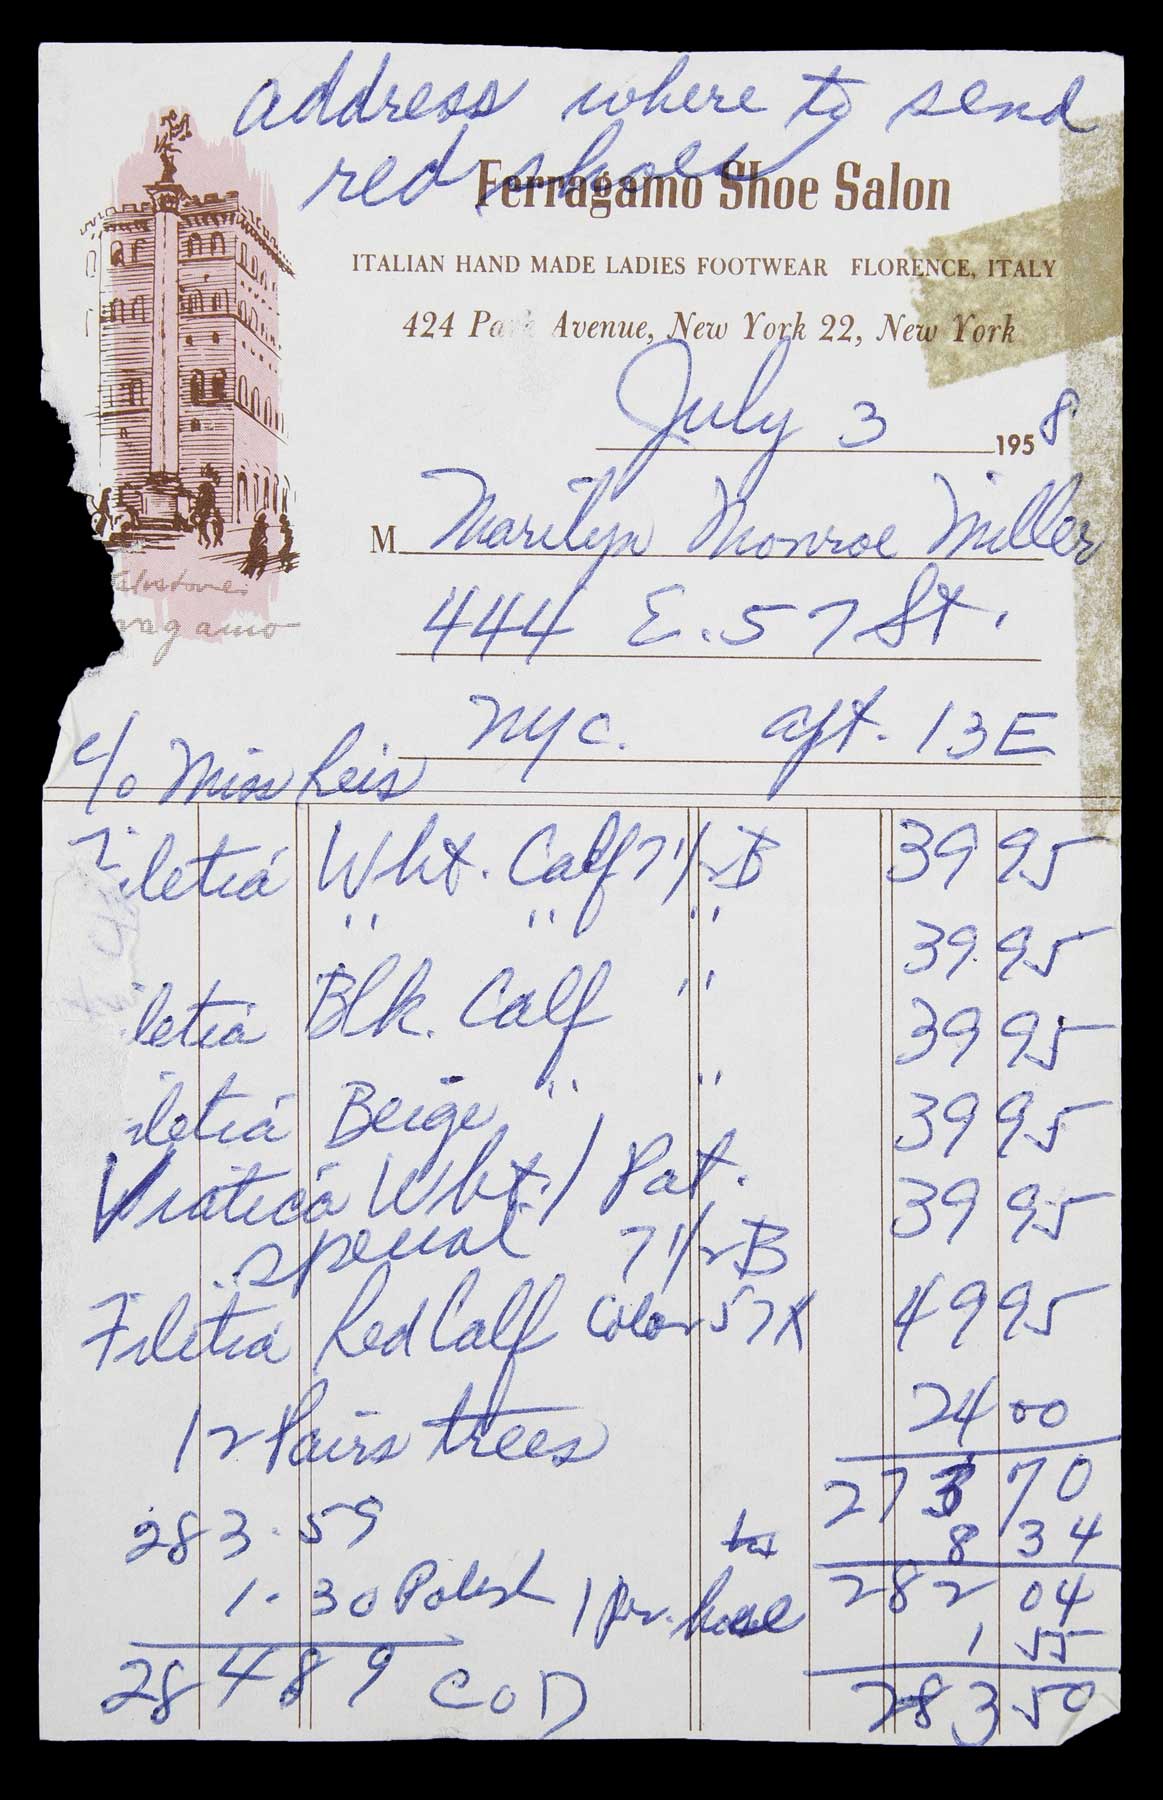 address where to send
red shoes
Ferragamo Shoe Salon
ITALIAN HAND MADE LADIES FOOTWEAR FLORENCE, ITALY
424 Park Avenue, New York 22, New York
July 3 1958
M Marilyn Monroe Miller
444 E. 57 St.
NYC. apt. 13E
c/o Miss Reis
alvatore
ragamo
Filetia Wht. Calf 7 1/2 B 39 95
" " " 39.95
iletia Blk. Calf " 39 95
iletia Beige " " 39 95
Viatica Wht. / Pat. 39 95
special 7 1/2 B
Filetia Red Calf Color 57X 49 95
12 Pairs trees 24 00
273 70
283.59 tax 8 34
282 04
1.30 Polish 1 pr. hose 1 55
284 89 COD 283 59